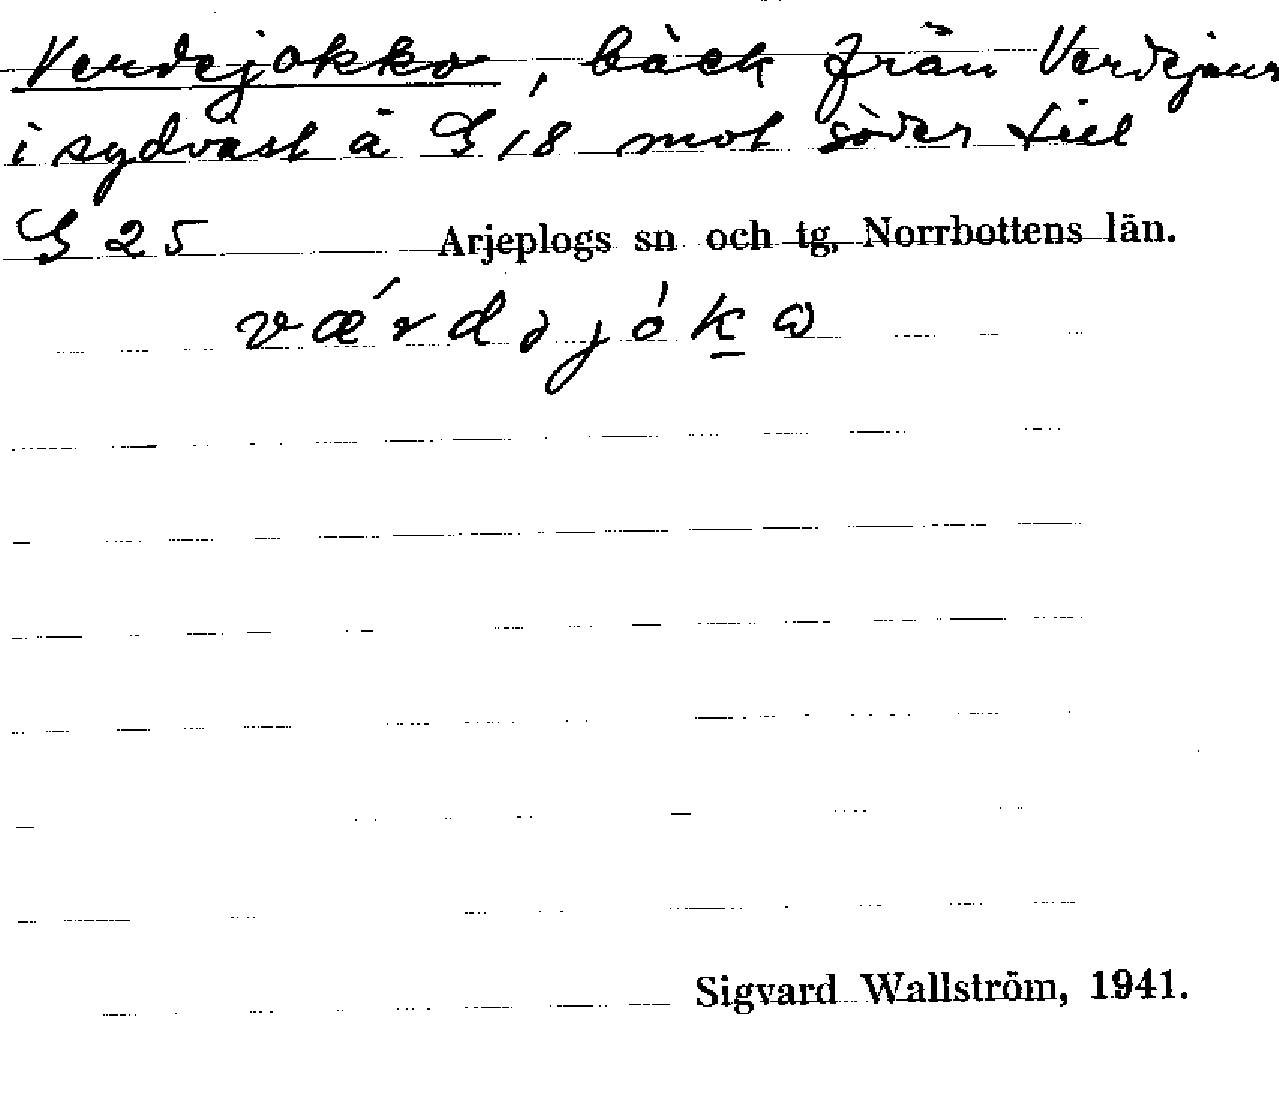 Verdejokko, bäck från Verdejaur
i sydväst å G 18 mot söder till
G 25 Arjeplogs sn och tg. Norrbottens län.
vǽrdǝjókω
Sigvard Wallström, 1941.